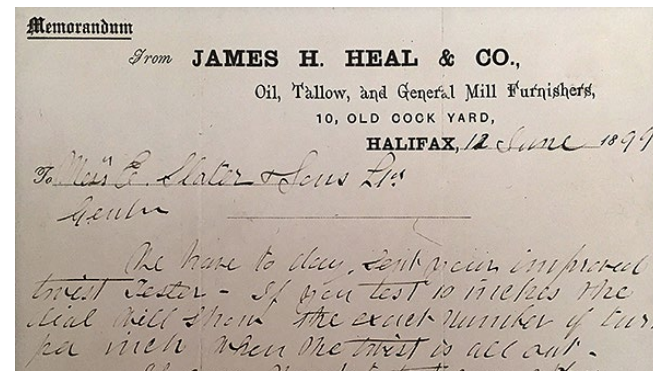 Memorandum
From JAMES H. HEAL & CO.,
Oil, Tallow, and General Mill Furnishers,
10, OLD COCK YARD,
HALIFAX, 12 June 1899
To Messrs E. Slater & Sons Ltd
Gentn
We have to day, sent you an improved
twist Tester - If you test 10 inches the
dial will show the exact number of tur
per inch when the twist is all out -